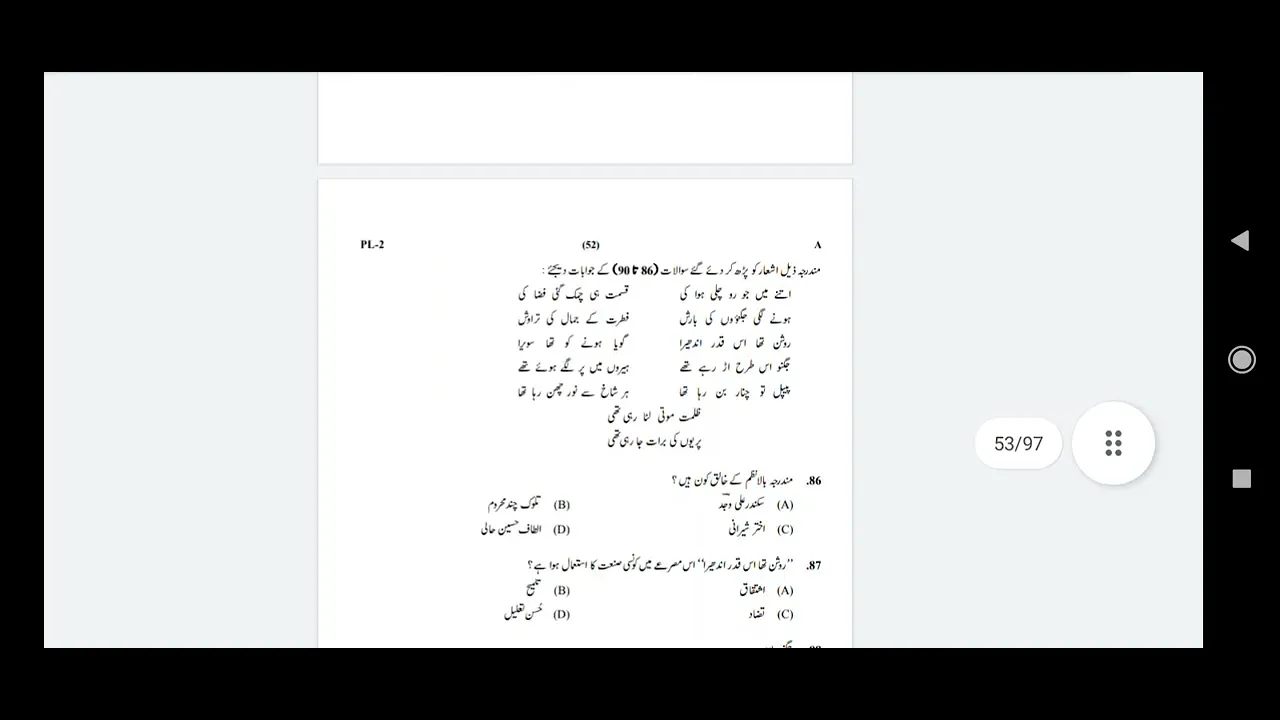 PL-2 (52) A
مندرجہ ذیل اشعار کو پڑھ کر دئے گئے سوالات (86 تا 90) کے جوابات دیجئے :
اتنے میں جو رو چلی ہوا کی قسمت ہی چمک گئی فضا کی
ہونے لگی جگنوؤں کی بارش فطرت کے جمال کی تراوش
روشن تھا اس قدر اندھیرا گویا ہونے کو تھا سویرا
جگنو اس طرح اڑ رہے تھے ہیروں میں پر لگے ہوئے تھے
پیپل تو چنار بن رہا تھا ہر شاخ سے نور چھن رہا تھا
ظلمت موتی لٹا رہی تھی
پریوں کی برات جا رہی تھی
.86 مندرجہ بالا نظم کے خالق کون ہیں ؟
(A) سکندر علی وجد (B) تلوک چند محروم
(C) اختر شیرانی (D) الطاف حسین حالی
53/97
.87 ’’روشن تھا اس قدر اندھیرا‘‘ اس مصرعے میں کونسی صنعت کا استعمال ہوا ہے ؟
(A) اشتقاق (B) تلمیح
(C) تضاد (D) حُسنِ تعلیل